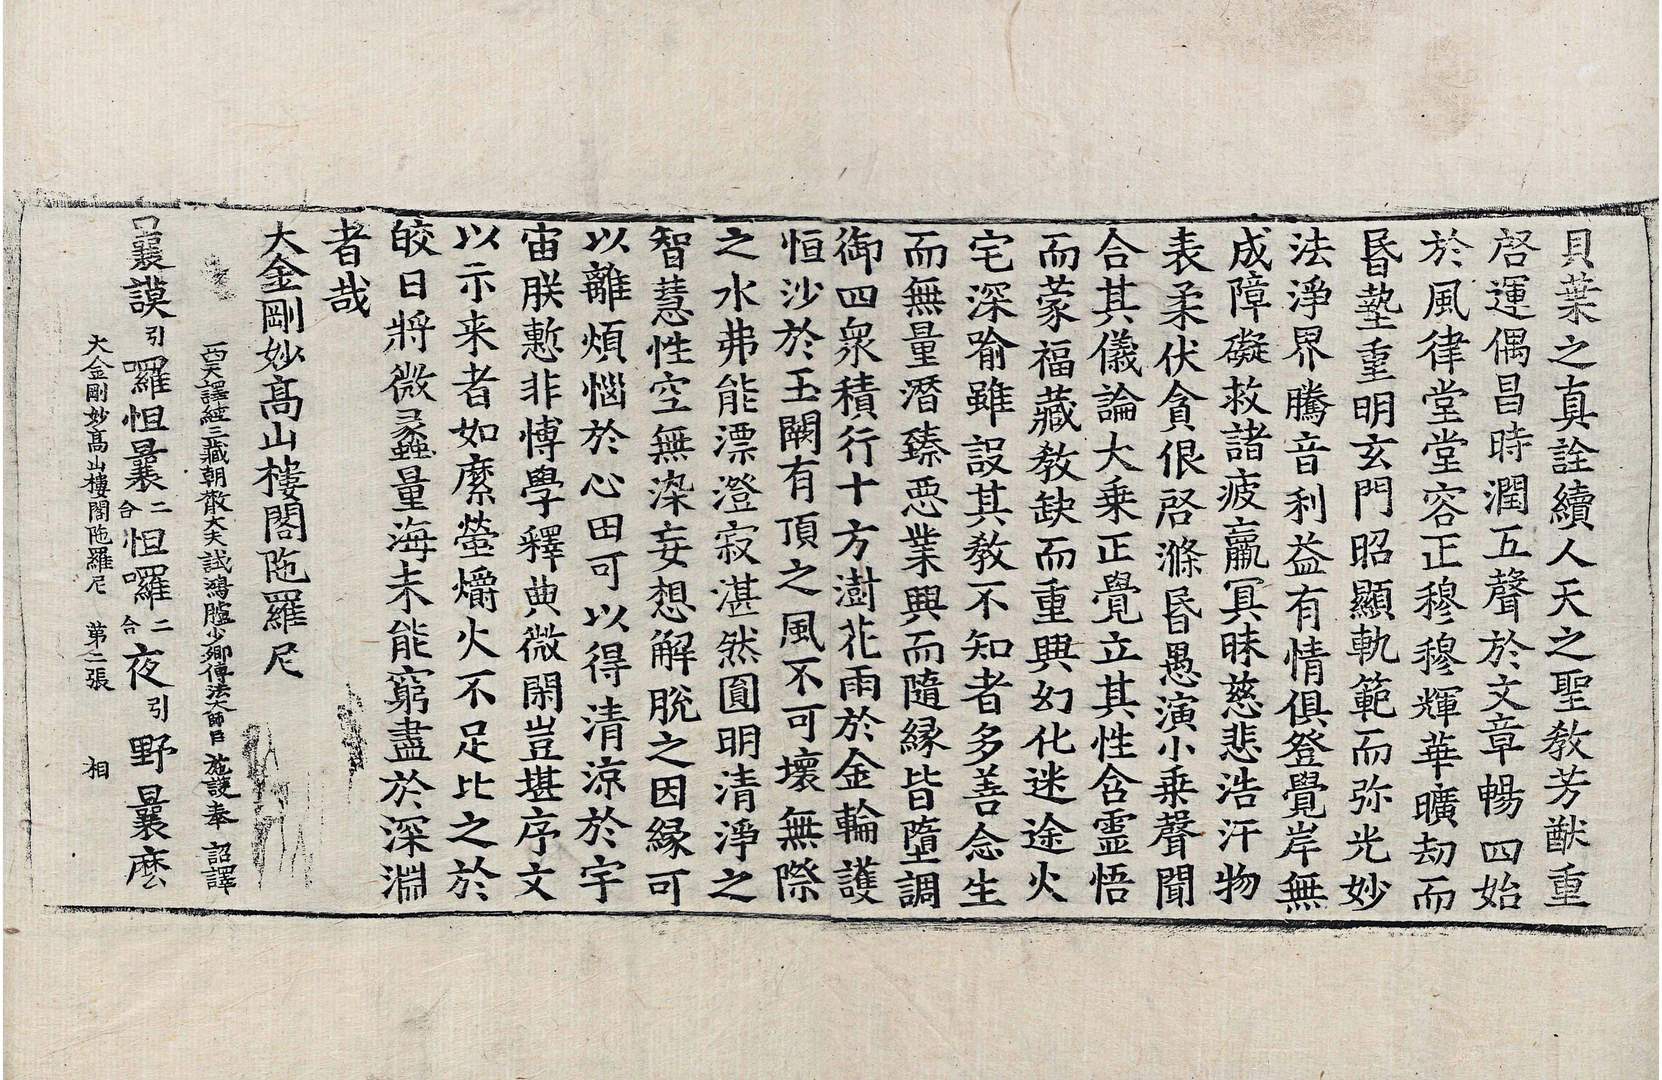 貝葉之真詮續人天之聖教芳猷重
啓運偶昌時潤五聲於文章暢四始
於風律堂堂容正穆穆輝華曠劫而
昬墊重明玄門昭顯軌範而弥光妙
法淨界騰音利益有情俱登覺岸無
成障礙救諸疲羸冥昧慈悲浩汗物
表柔伏貪佷啓滌昬愚演小乗聲聞
合其儀論大乗正覺立其性含靈悟
而蒙福藏教缺而重興幻化迷途火
宅深喻雖設其教不知者多善念生
而無量潛臻惡業興而隨縁皆墮調
御四衆積行十方澍花雨於金輪護
恒沙於玉闕有頂之風不可壞無際
之水弗能漂澄寂湛然圓明清淨之
智慧性空無染妄想解脫之因縁可
以離煩惱於心田可以得清涼於宇
宙朕慙非博學釋典微閑豈堪序文
以示来者如縻螢爝火不足比之於
皎日將微蠡量海未能窮盡於深淵
者哉
大金剛妙高山樓閣陁羅尼
西天譯經三藏朝散大夫試鴻臚少卿傳法大師臣 施護奉 詔譯
曩謨引囉怛曩二合怛囉二合夜引野曩麽
大金剛妙高山樓閣陁羅尼 第二張 相